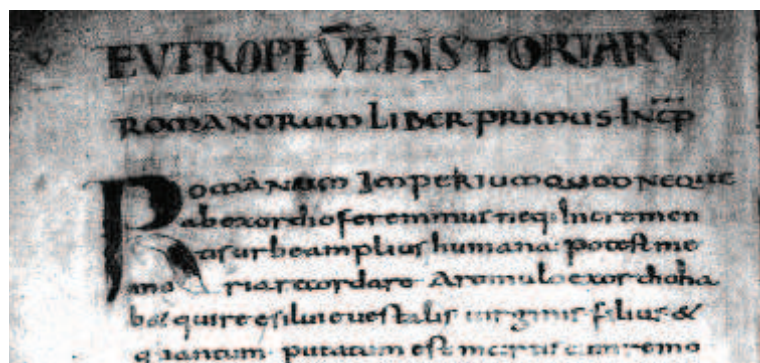 EVTROPI VE hISTORIARV
ROMANORUM LIBER PRIMUS INCP
ROMANUM IMPERIUM QUOD NEQUE
ab exordio fere minus neq; incremen
tis urbe amplius humana potest me
mo ria recordare Aromulo exordio ha
b& qui re esiluie uestalis uirginis filius &
quantum putatum est martis cum remo